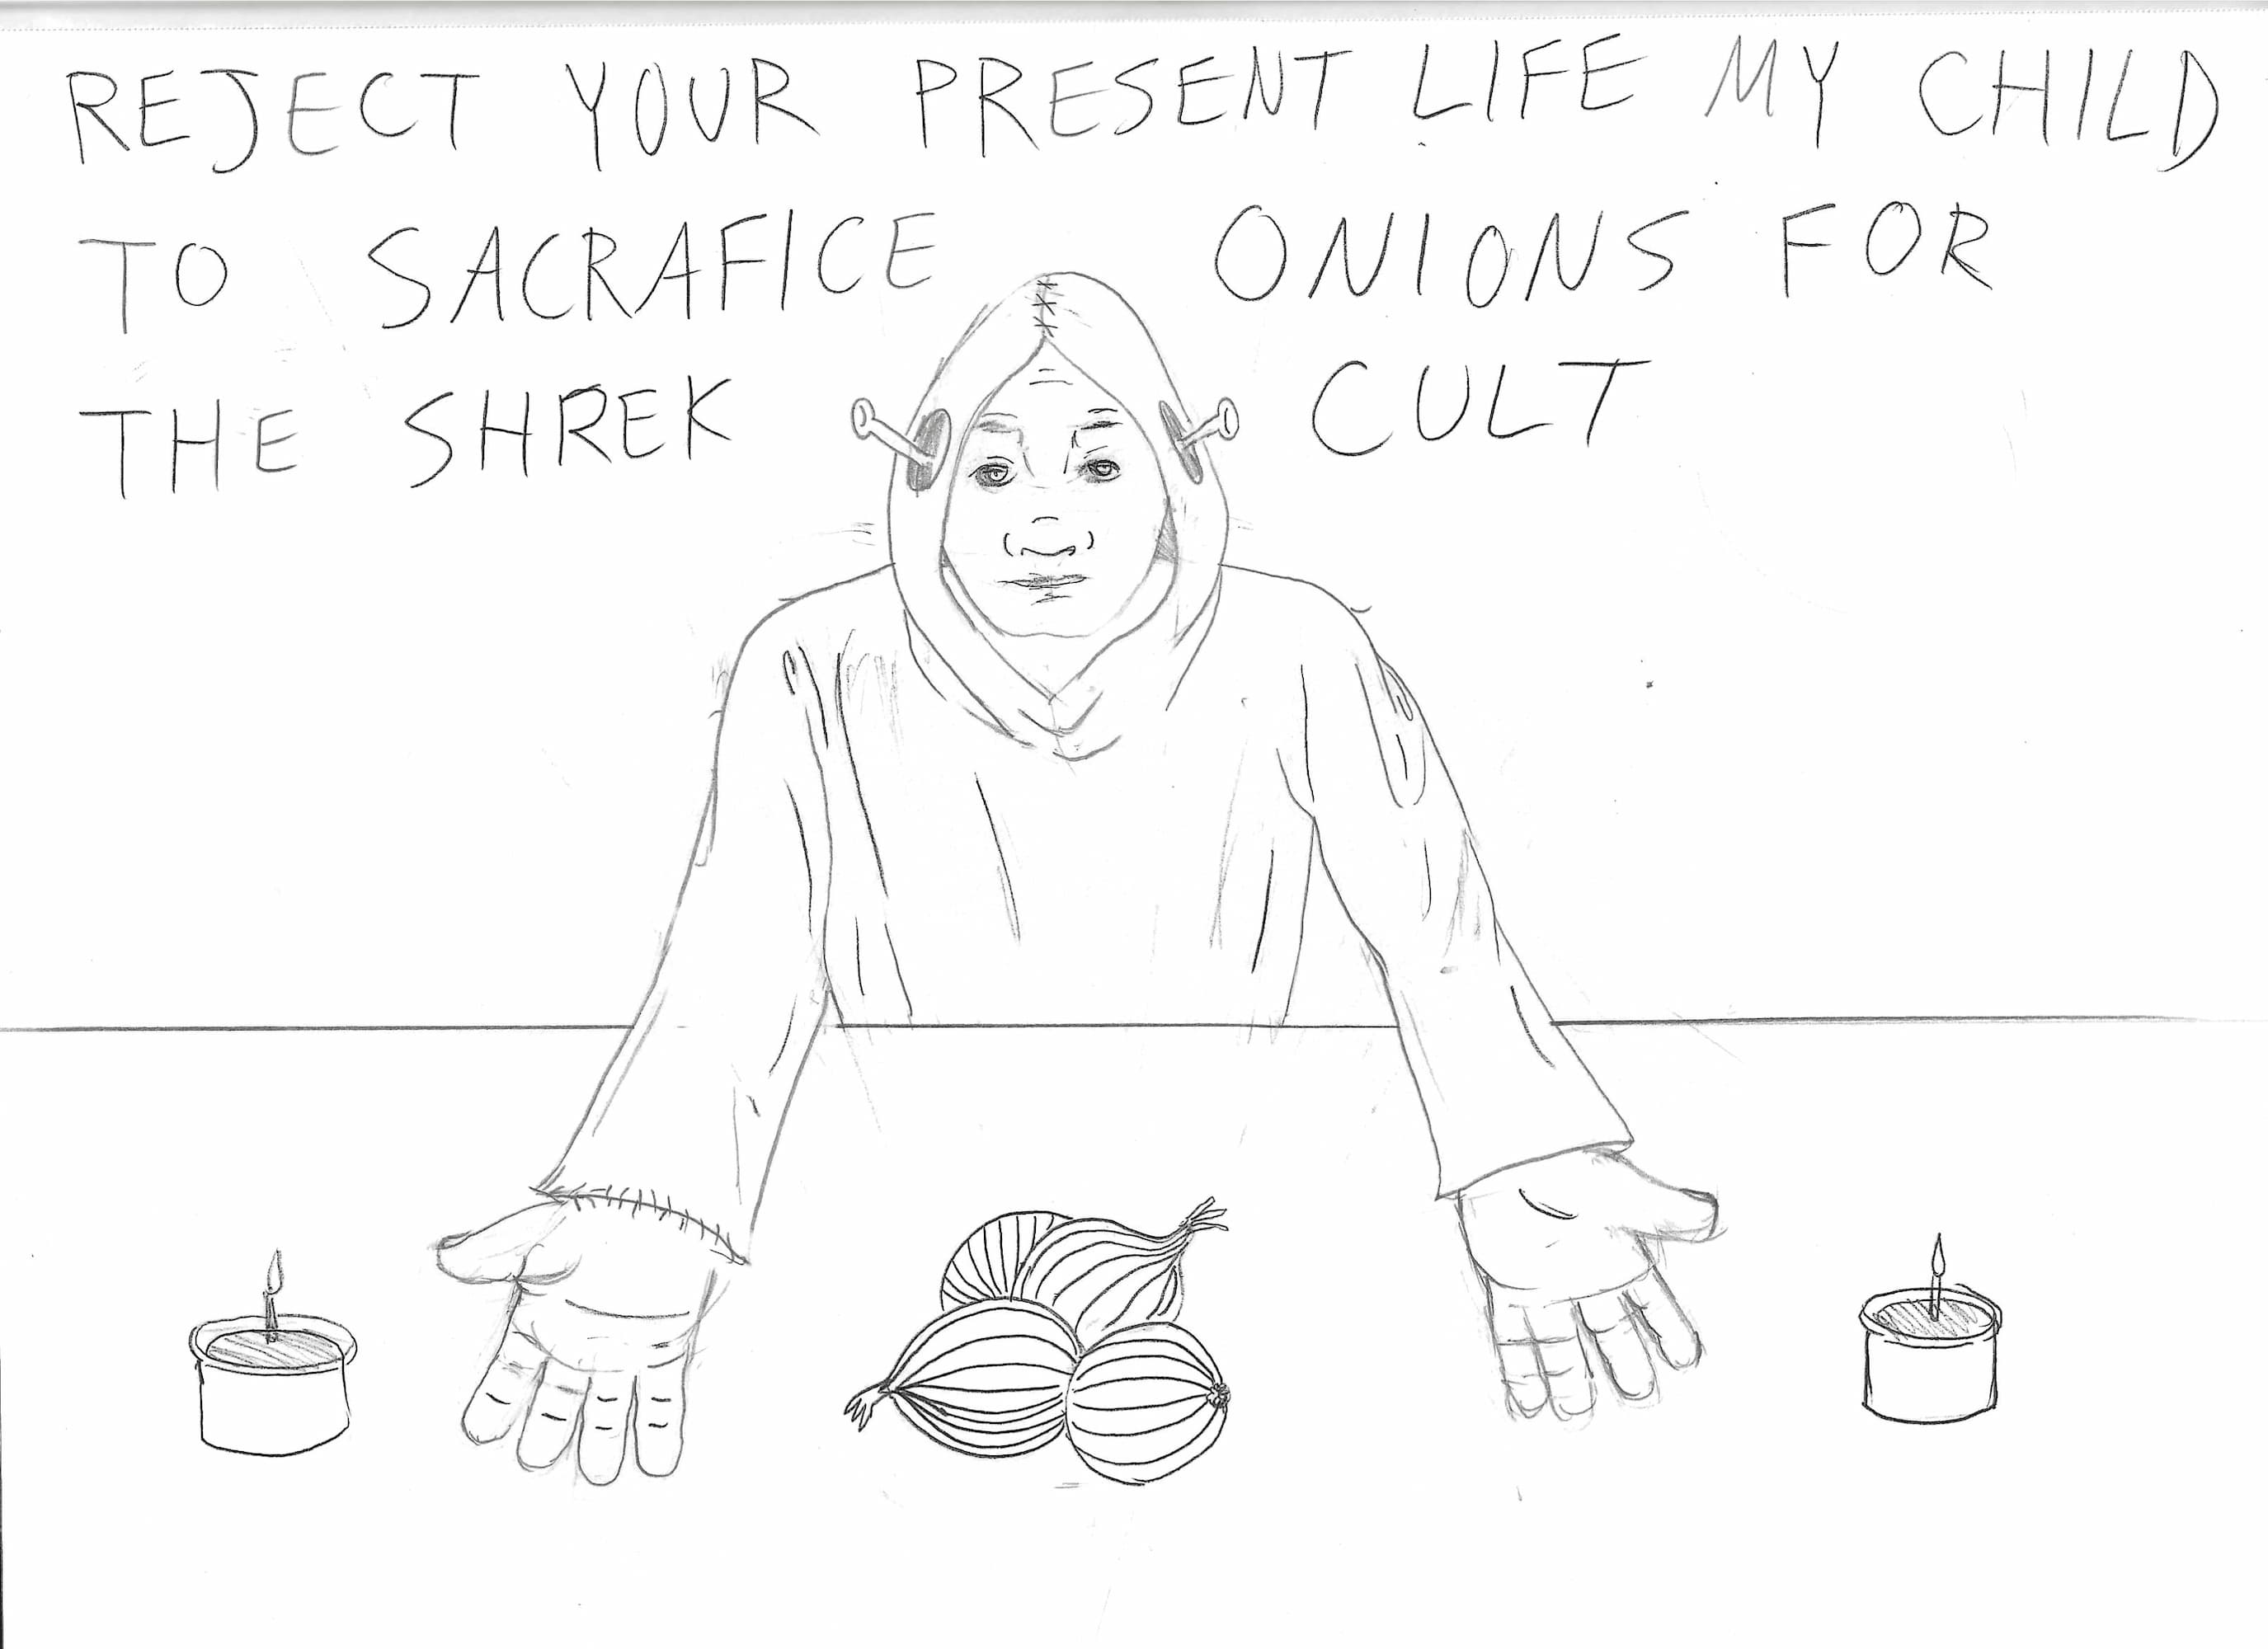 REJECT YOUR PRESENT LIFE MY CHILD
TO SACRAFICE ONIONS FOR
THE SHREK CULT